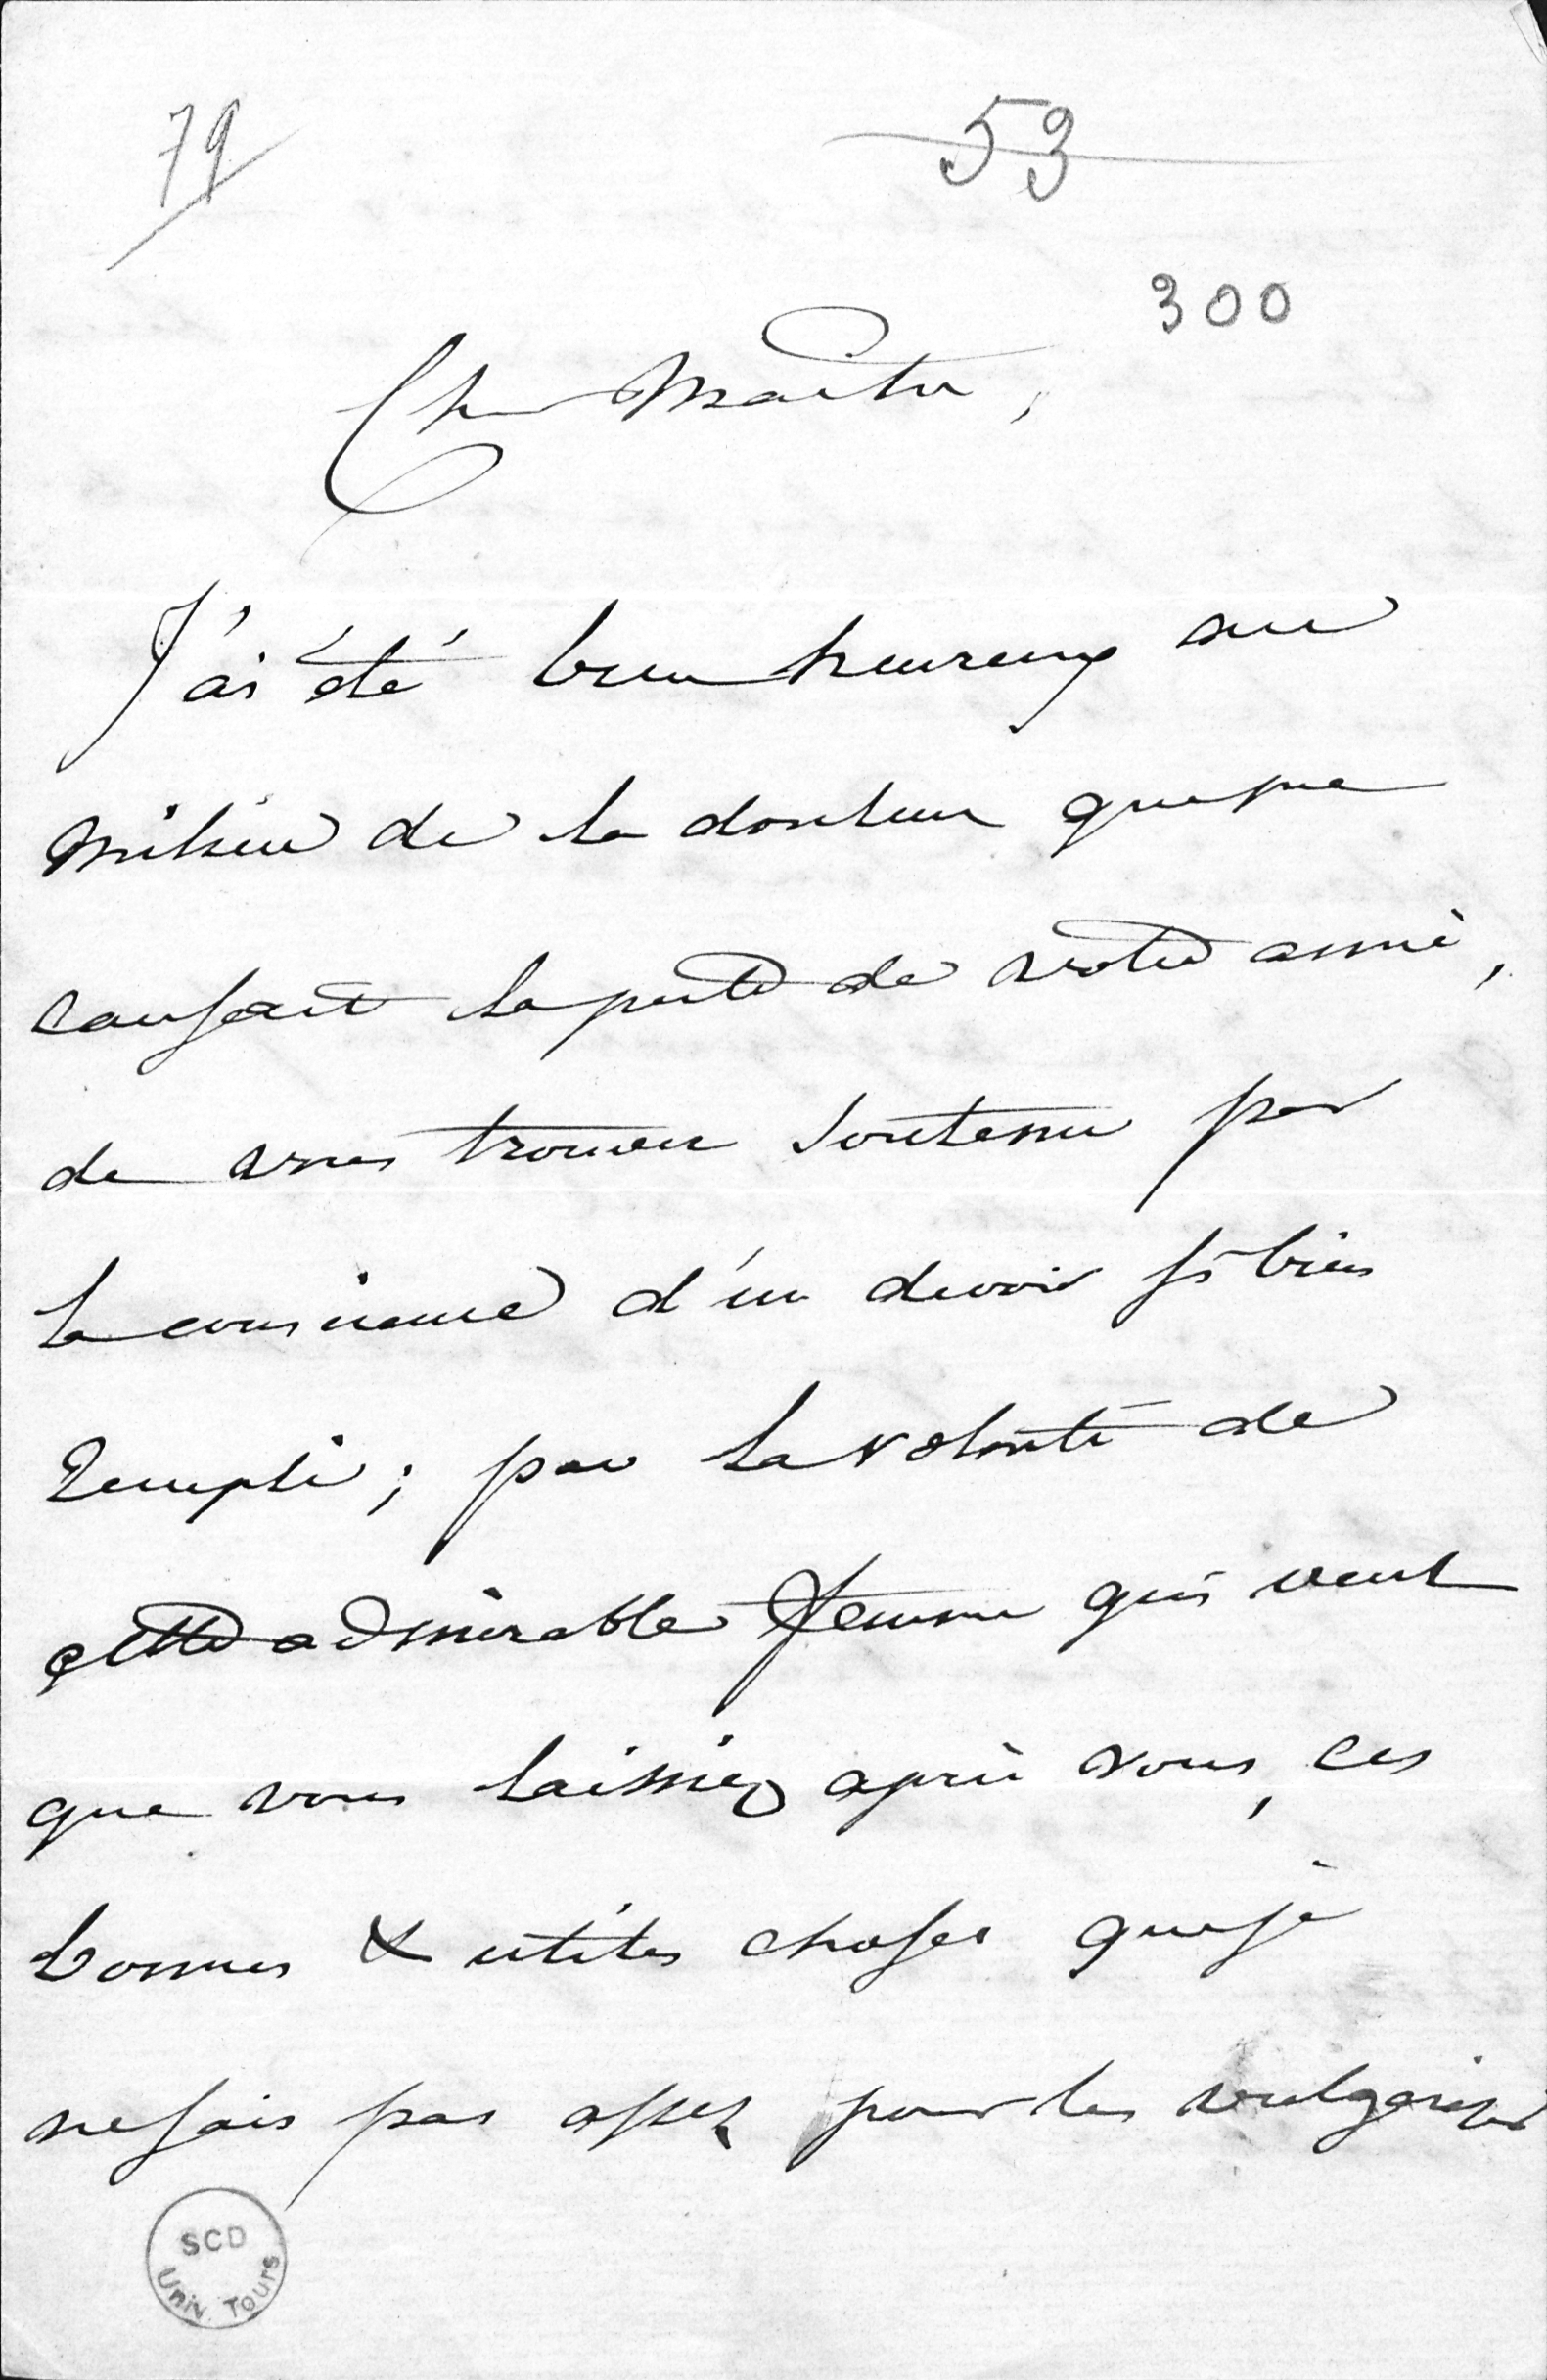 79
53
300
Cher Maître,
J'ai été bien heureux au
milieu de la douleur que me
causait la perte de votre amie,
de vous trouver soutenu par
la conscience d'un devoir si bien
rempli ; par la volonté de
cette admirable femme qui veut
que vous laissiez après vous, ces
bonnes & utiles choses que je
ne sais pas assez pour les vulgariser
SCD
Univ. Tours